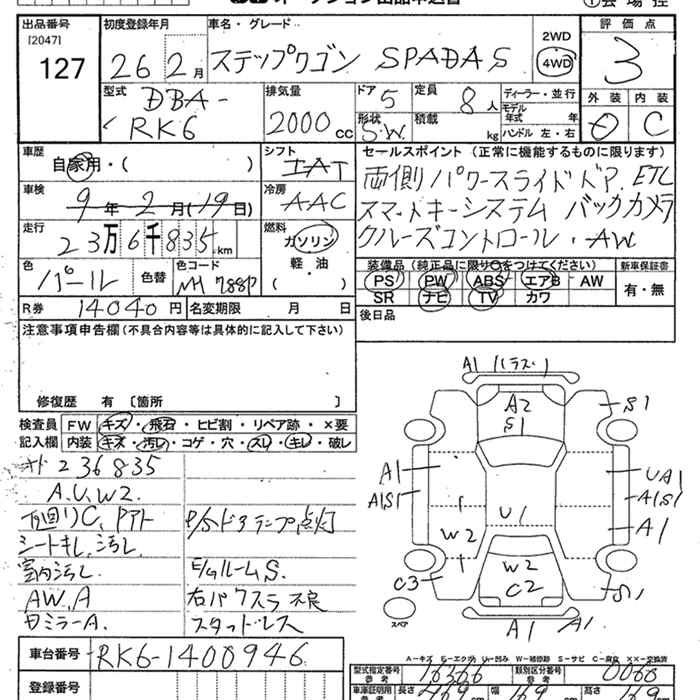 オークション出品申込書
①会場控
出品番号
[2047]
127
初度登録年月
26 2月
車名・グレード
ステップワゴン SPADA S
2WD
4WD
評価点
3
型式
DBA-
RK6
排気量
2000 cc
ドア 5
形状 S.W.
定員 8人
積載 kg
ディーラー・並行
モデル
年式 年
ハンドル 左・右
外装 内装
C
車歴
自家用・( )
シフト
IAT
セールスポイント (正常に機能するものに限ります)
両側パワースライドドア, ETC
スマートキーシステム バックカメラ
クルーズコントロール・AW
車検
9年2月(19日)
冷房
AAC
走行
23万6千835km
燃料
ガソリン
軽・油
( )
色
パール
色替
色コード
NH788P
装備品 (純正品に限り○をつけてください)
PS PW ABS エアB AW
SR ナビ TV カワ
新車保証書
有・無
R券 14040円
名変期限 月 日
後日品
注意事項申告欄 (不具合内容等は具体的に記入して下さい)
修復歴 有 〔箇所 〕
検査員
記入欄
FW キズ・飛石・ヒビ割・リペア跡・×要
内装 キズ・汚レ・コゲ・穴・スレ・キレ・破レ
236835
A.U.W2.
下回りC, Pアト
P/Sドアランプ点灯
シートキレ,汚レ
室内汚レ
E/GルームS.
AW.A
右パワスラ不良
ミラーA.
スタッドレス
車台番号
RK6-1400946
登録番号
A1(ラズレ)
A2
S1
S1
A1
A1S1
UA1
A1S1
A1
U1
W2
W2
C2
C3
S1
A1
A1
スペア
A-キズ E-エクボ U-凹み W-補修跡 S-サビ C-腐食 XX-交換済
型式指定番号
参考
16366
類別区分番号
参考
0066
車庫証明用
参考
長さ
幅
高さ